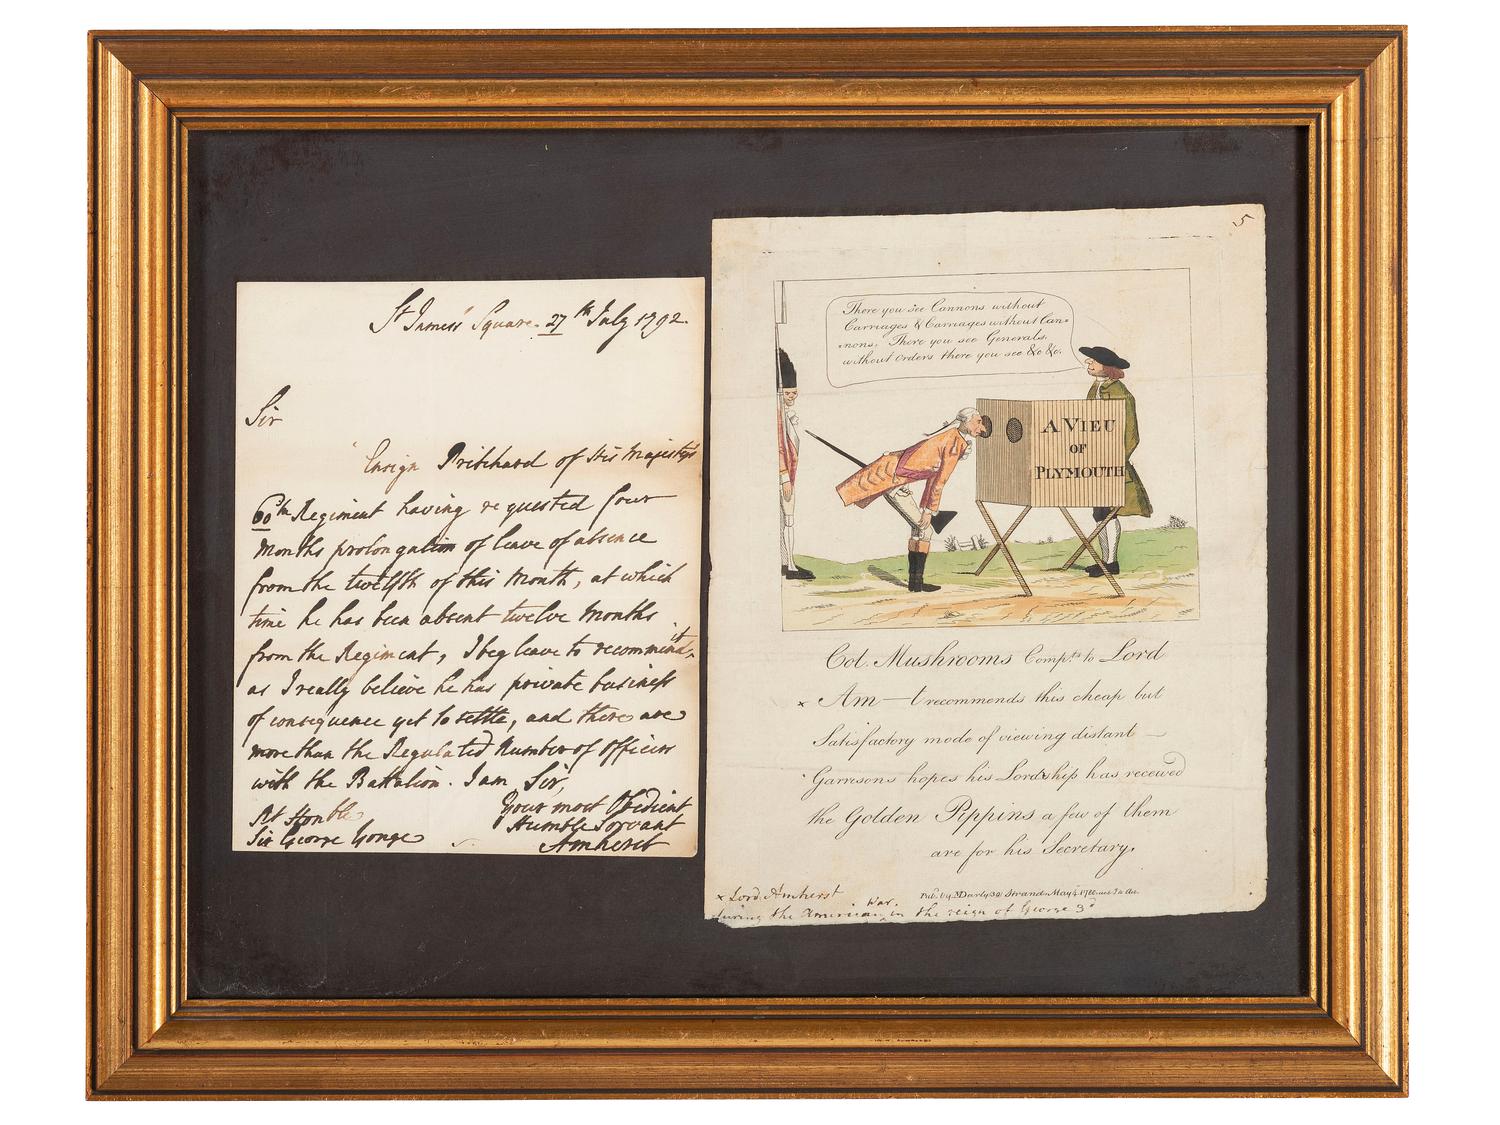 St James' Square. 27th July 1792.
Sir
Ensign Pritchard of His Majesty's
60th Regiment having requested four
Months prolongation of leave of absence
from the twelfth of this Month, at which
time he has been absent twelve Months
from the Regiment, I beg leave to recommend it,
as I really believe he has private business
of consequence yet to settle, and there are
more than the Regulated Number of Officers
with the Battalion. I am Sir,
Your most Obedient
Humble Servant
Amherst
Rt Honble
Sir George Yonge
5
There you see Cannons without
Carriages & Carriages without Can=
=nons. There you see Generals
without Orders there you see &c &c.
A VIEU
OF
PLYMOUTH
Col. Mushrooms Compts. to Lord
x Am—t recommends this cheap but
Satisfactory mode of viewing distant —
Garrisons hopes his Lordship has received
the Golden Pippins a few of them
are for his Secretary.
Pubd. by MDarly 39 Strand May 4
x Lord Amherst
during the American War, in the reign of George 3d